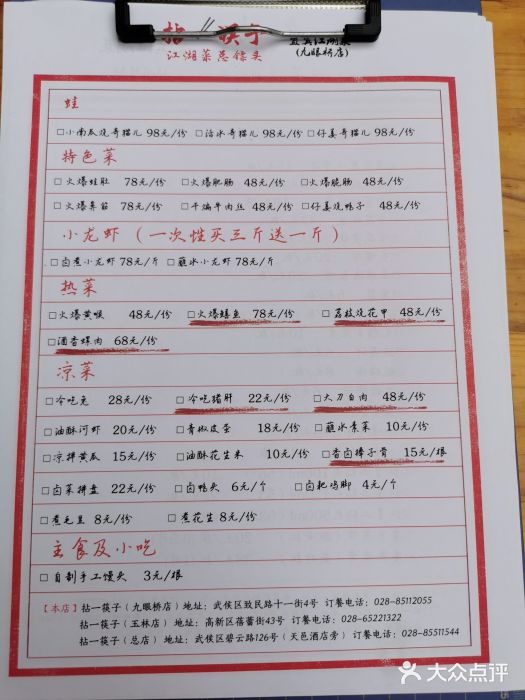 拈一筷子
江湖菜总馆头
(九眼桥店)
蛙
□小南瓜烧哥猫儿 98元/份 □沾水哥猫儿 98元/份 □仔姜哥猫儿 98元/份
特色菜
□火爆蛙肚 78元/份 □火爆肥肠 48元/份 □火爆脆肠 48元/份
□火爆鼻筋 78元/份 □干煸牛肉丝 48元/份 □仔姜烧鸭子 48元/份
小龙虾 (一次性买三斤送一斤)
□卤煮小龙虾 78元/斤 □蘸水小龙虾 78元/斤
热菜
□火爆黄喉 48元/份 □火爆鳝鱼 78元/份 □荔枝烧花甲 48元/份
□酒香螺肉 68元/份
凉菜
□冷吃兔 28元/份 □冷吃猪肝 22元/份 □大刀白肉 48元/份
□油酥河虾 20元/份 □青椒皮蛋 18元/份 □蘸水素菜 10元/份
□凉拌黄瓜 15元/份 □油酥花生米 10元/份 □香卤棒子骨 15元/根
□卤菜拼盘 22元/份 □卤鸭头 6元/个 □卤耙鸡脚 4元/个
□煮毛豆 8元/份 □煮花生 8元/份
主食及小吃
□自制手工馒头 3元/根
【本店】拈一筷子(九眼桥店)地址：武侯区致民路十一街4号 订餐电话：028-85112055
拈一筷子(玉林店)地址：高新区蓓蕾街43号 订餐电话：028-65221322
拈一筷子(总店)地址：武侯区碧云路126号(天邑酒店旁)订餐电话：028-85511544
大众点评